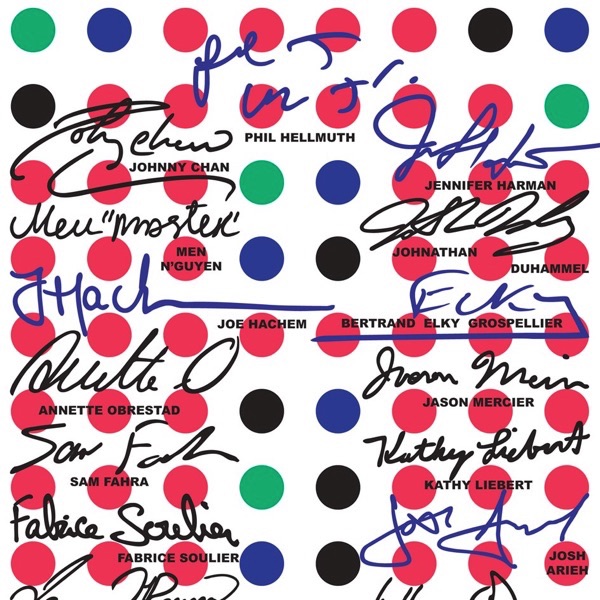 PHIL HELLMUTH
Johnny Chan
JOHNNY CHAN
JENNIFER HARMAN
Men "master"
MEN
N'GUYEN
JOHNATHAN
DUHAMMEL
J Hach
JOE HACHEM
ElKy
BERTRAND ELKY GROSPELLIER
Annette O
ANNETTE OBRESTAD
Jason Mercier
JASON MERCIER
Sam Farha
SAM FAHRA
Kathy Liebert
KATHY LIEBERT
Fabrice Soulier
FABRICE SOULIER
Josh Arieh
JOSH
ARIEH